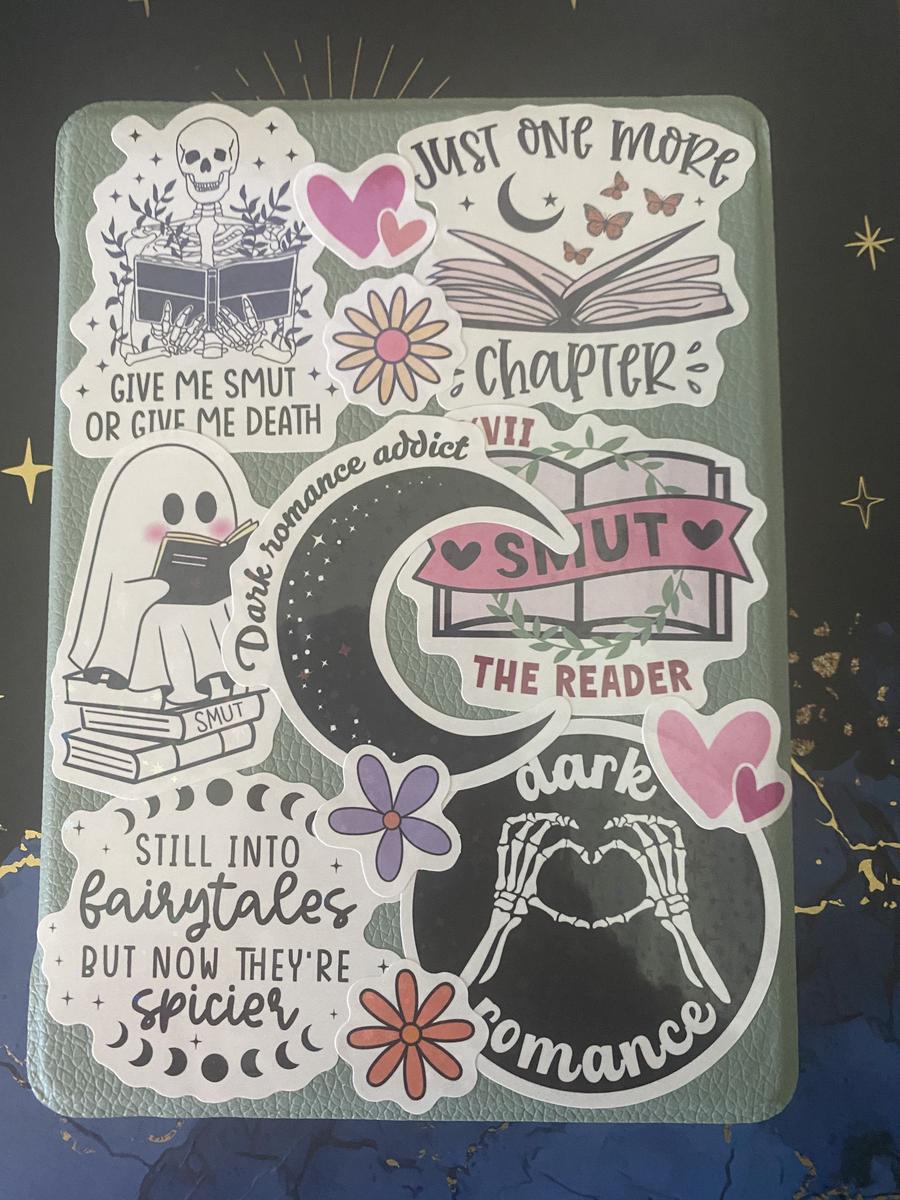 GIVE ME SMUT
OR GIVE ME DEATH
JUST ONE MORE
CHAPTER
Dark romance addict
XVII
SMUT
THE READER
SMUT
STILL INTO
fairytales
BUT NOW THEY'RE
spicier
dark
romance